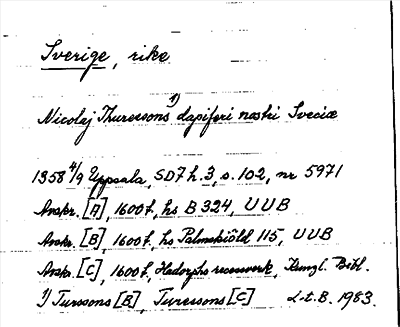 Sverige, rike
Nicolaj Thuressons 1) dapiferi nostri Sveciæ
1358 4/9 Uppsala, SD7 h.3, s. 102, nr 5971
Avskr. [A], 1600t, hs B 324, UUB
Avskr. [B], 1600t, hs Palmskiöld 115, UUB
Avskr. [C], 1600t, Hadorphs reseverk, Kungl. Bibl.
1) Turssons [B], Turessons [C] L-t.B. 1983.